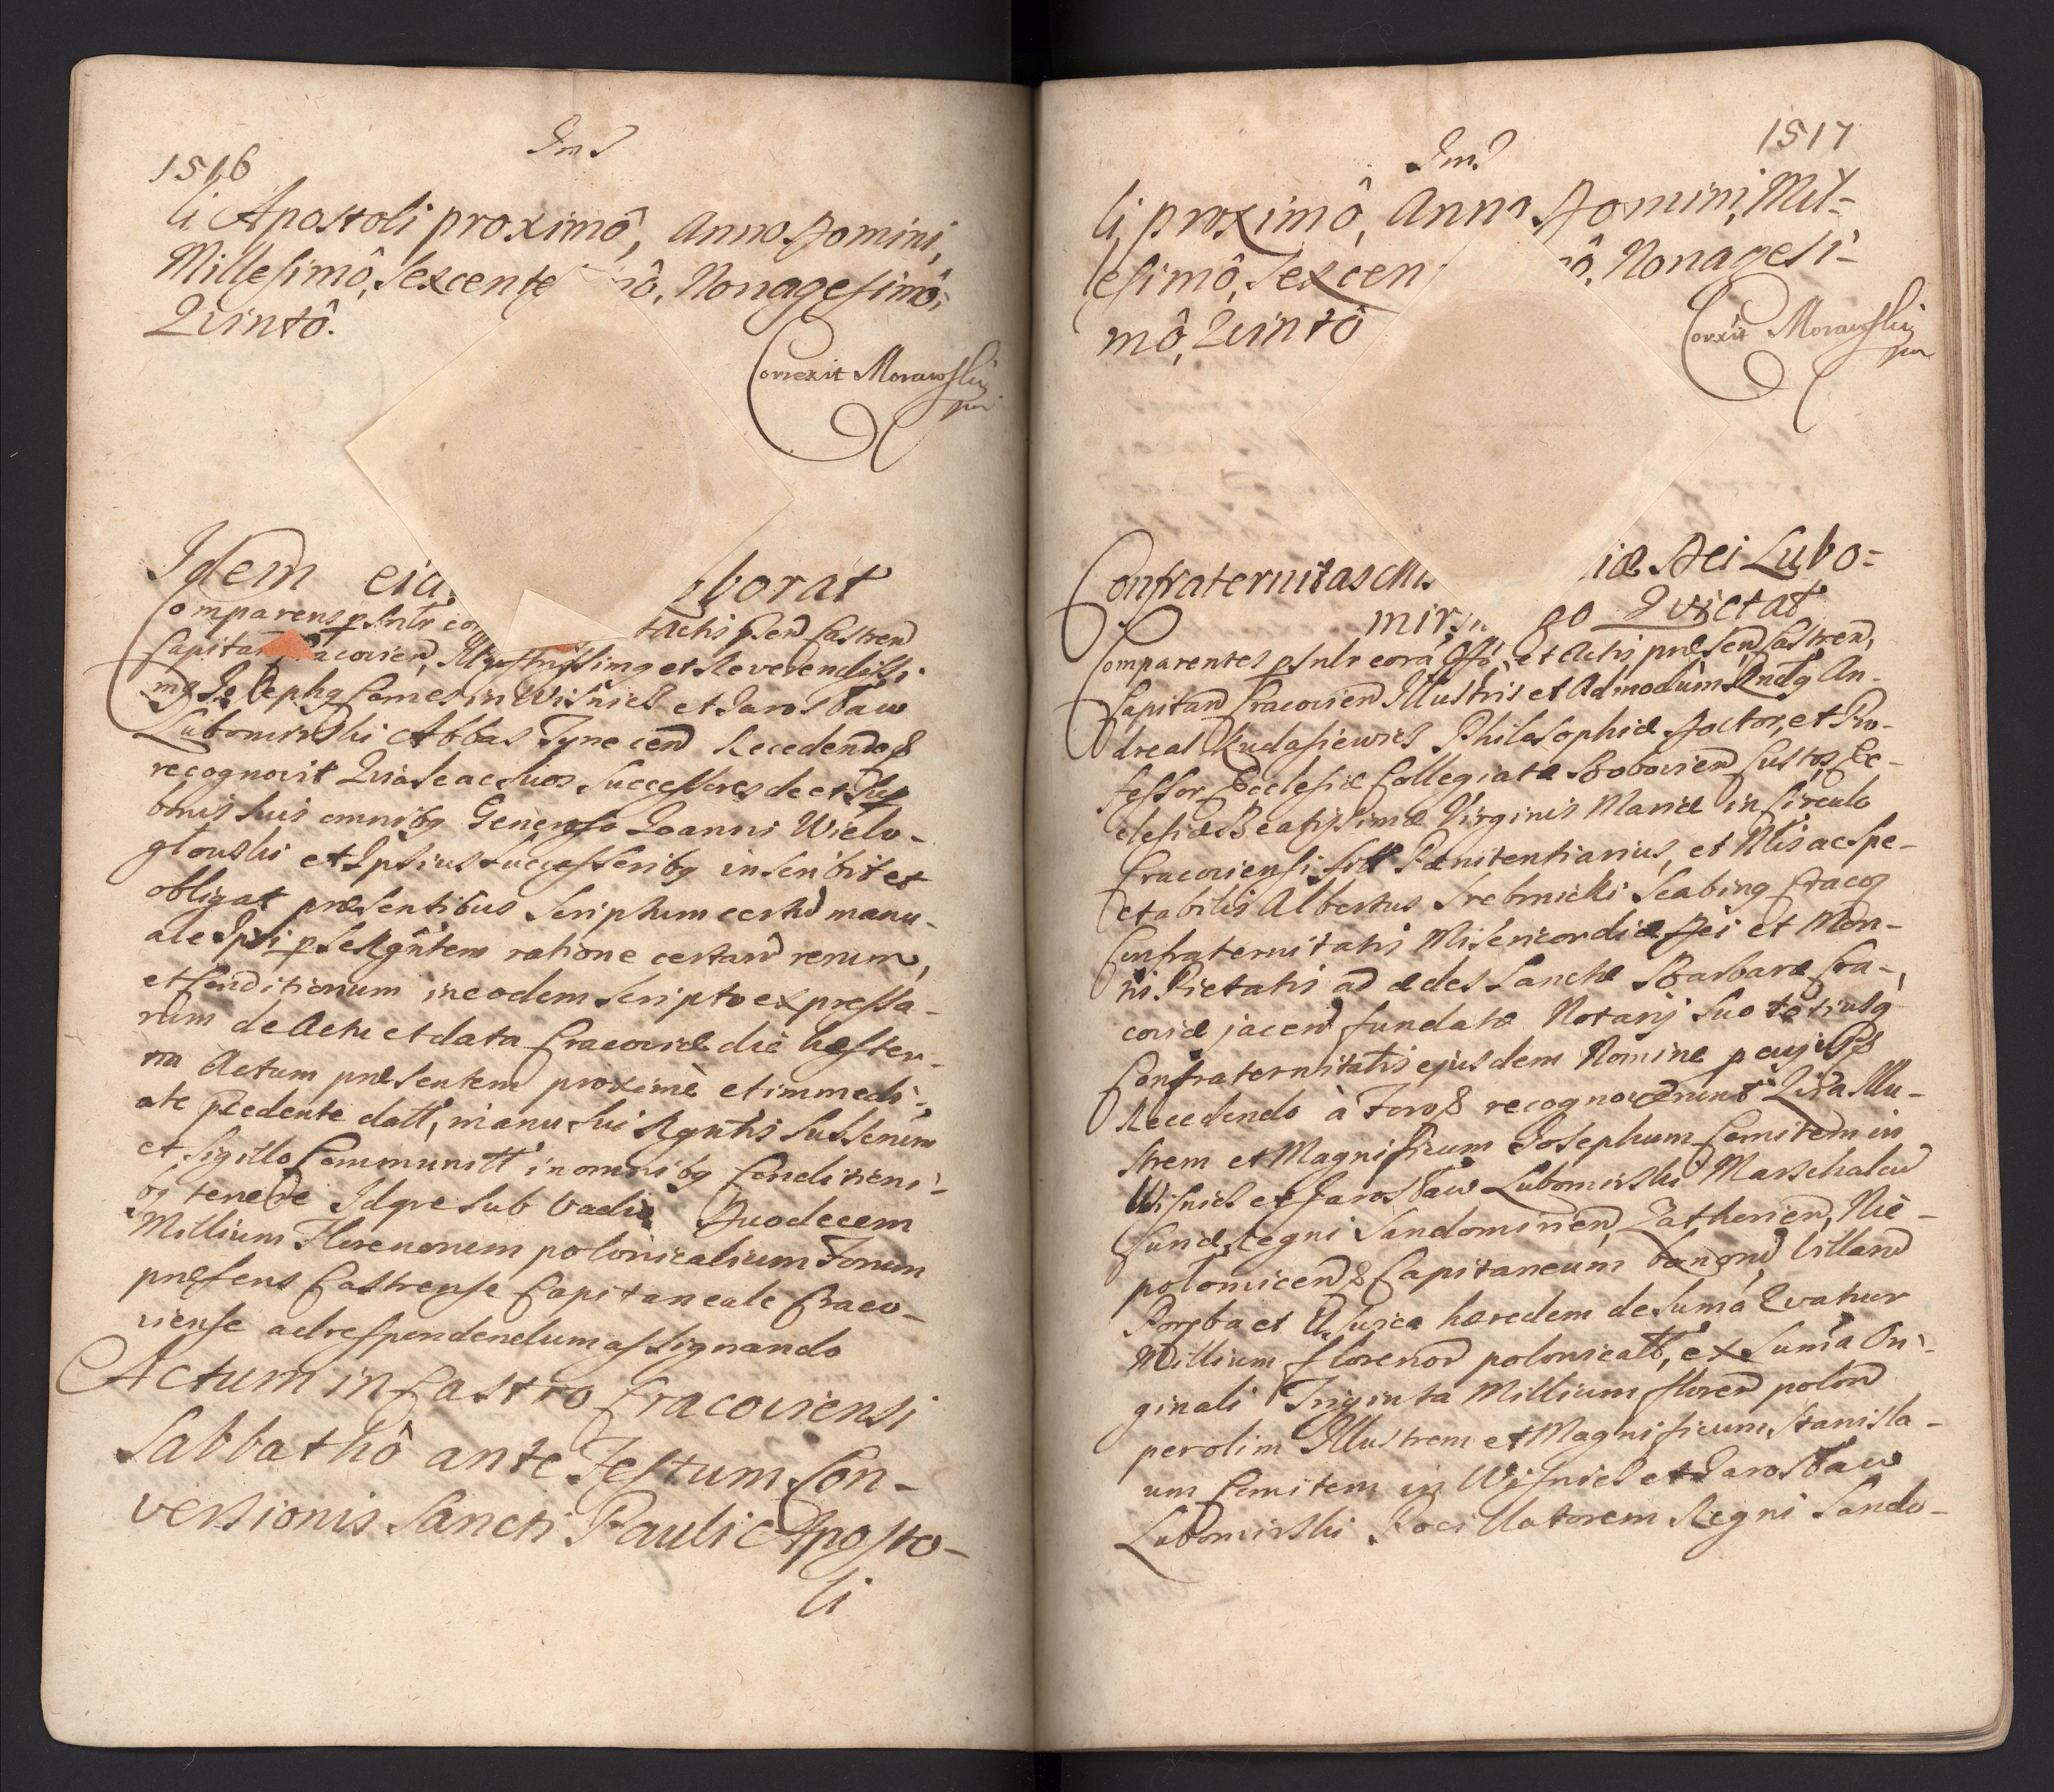 1516
Ind
li Apostoli proximô, Anno Domini,
Millesimô, Sexcente nô, Nonagesimô,
Quintô.
Correxit Morawski
mp
Idem eid borat
Comparens psnlr cor Actis psen Castren
Capitan racovien, Illustrissimg et Reverendissi-
mg Josephg Comes in Wisnicz et Jarosław
Lubomirski Abbas Tynecen Recedendo
recognovit Quia se ac suos Successores de et sup
bonis suis omnibg Generoso Joanni Wielo-
głowski et Ipsius Successoribg inscribit et
obligat præsentibus Scriptum certu manu-
ale Ipsi p se Rgntem ratione certaru rerum,
et Conditionum in eodem Scripto expressa-
rum de Actu et data Cracoviæ die hester-
na Actum præsentem proximè et immedi-
ate pcedente datt, manu sui Rgntis Subscrim
et Sigillo Communitt in omnibg Conditioni-
bg tenere Idque sub Vadio Duodecem
Millium Florenorum polonicalium Forum
præsens Castrense Capitaneale Craco-
viense ad respondendum assignando
Actum in Castro Cracoviensi
Sabbathô ante Festum Con-
versionis Sancti Pauli Aposto-
li
1517
Ind
li, proximô, Anno Domini, Mil-
lesimô, Sexcen nô, Nonagesi-
mô, Quintô
Corxit Morawski
mp
Confraternitas Mis iæ Dei Lubo-
mirs go Quietat
Comparentes psnlr corã Offô, et Actis præsen Castren,
Capitan Cracovien Illustris et Admodùm Rndg An-
dreas Rudasiewicz Philosophiæ Doctor, et Pro-
fessor Ecclesiæ Collegiatæ Bobovien Custos, Ec-
clesiæ Beatissimæ Virginis Mariæ in Circulo
Cracoviensi Pænitentiarius, et Nlis ac Spe-
ctabilis Albertus Srebrnicki Scabing Cracov
Confraternitatis Misericordiæ Dei et Mon-
tis Pietatis ad ædes Sanctæ Barbaræ Cra-
coviæ jacen fundatæ Notarij Suo totiusq
Confraternitatis ejusdem Nomine
Recedendo à Foro recognoverunt Quia Illu-
strem et Magnificum Josephum Comitem in
Wisnicz et Jarosław Lubomirski Marschalcu
Curiæ Regni Sandomirien, Zathorien, Nie-
połomicen Capitaneum bonoru Villaru
Poręba et haeredem de Summa Qvatuor
Millium florenor polonicalt, ex Suma Ori-
ginali Triginta Millium floren polon
per olim Illustrem et Magnificum Stanisla-
um Comitem in Wisnicz et Jarosław
Lubomirski Pocillatorem Regni Sando-